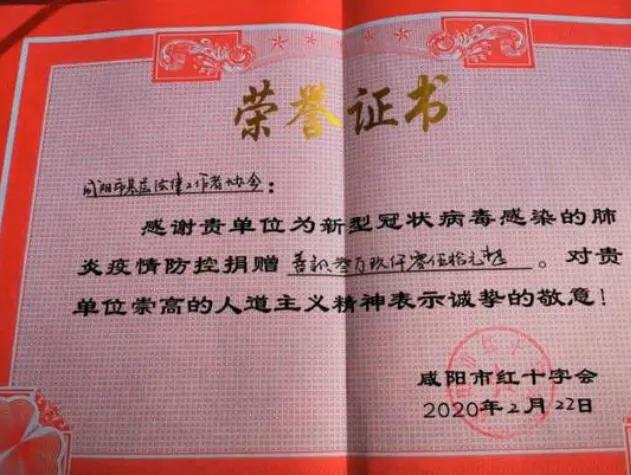 荣誉证书
咸阳市基层法律工作者协会：
感谢贵单位为新型冠状病毒感染的肺
炎疫情防控捐赠 善款叁万玖仟零伍拾元整。对贵
单位崇高的人道主义精神表示诚挚的敬意！
咸阳市红十字会
2020年2月22日